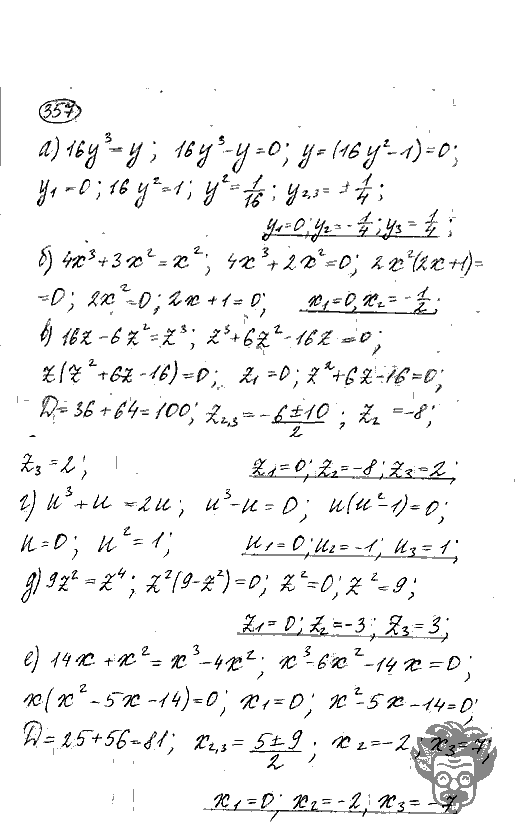 357
а) 16y³=y; 16y³-y=0; y=(16y²-1)=0;
y₁=0; 16y²=1; y²=1/16; y₂,₃=±1/4;
y₁=0; y₂=-1/4; y₃=1/4;
б) 4x³+3x²=x²; 4x³+2x²=0; 2x²(2x+1)=
=0; 2x²=0; 2x+1=0; x₁=0, x₂=-1/2;
в) 16z-6z²=z³; z³+6z²-16z=0;
z(z²+6z-16)=0; z₁=0; z²+6z-16=0;
D=36+64=100; z₂,₃=-6±10/2; z₂=-8;
z₃=2; z₁=0; z₂=-8; z₃=2;
г) u³+u=2u; u³-u=0; u(u²-1)=0;
u=0; u²=1; u₁=0; u₂=-1; u₃=1;
д) 9z²=z⁴; z²(9-z²)=0; z²=0; z²=9;
z₁=0; z₂=-3; z₃=3;
е) 14x+x²=x³-4x²; x³-6x²-14x=0;
x(x²-5x-14)=0; x₁=0; x²-5x-14=0;
D=25+56=81; x₂,₃=5±9/2; x₂=-2; x₃=7;
x₁=0; x₂=-2, x₃=-7